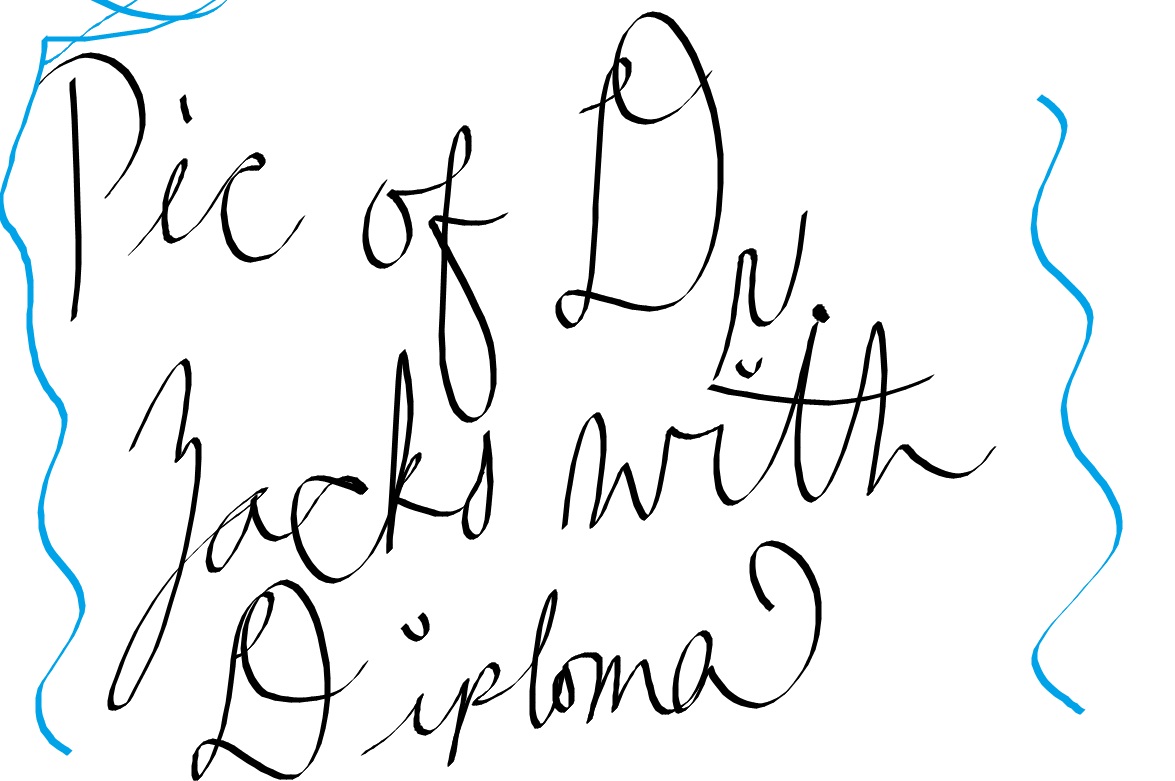 Pic of Dr.
Zacks with
Diploma